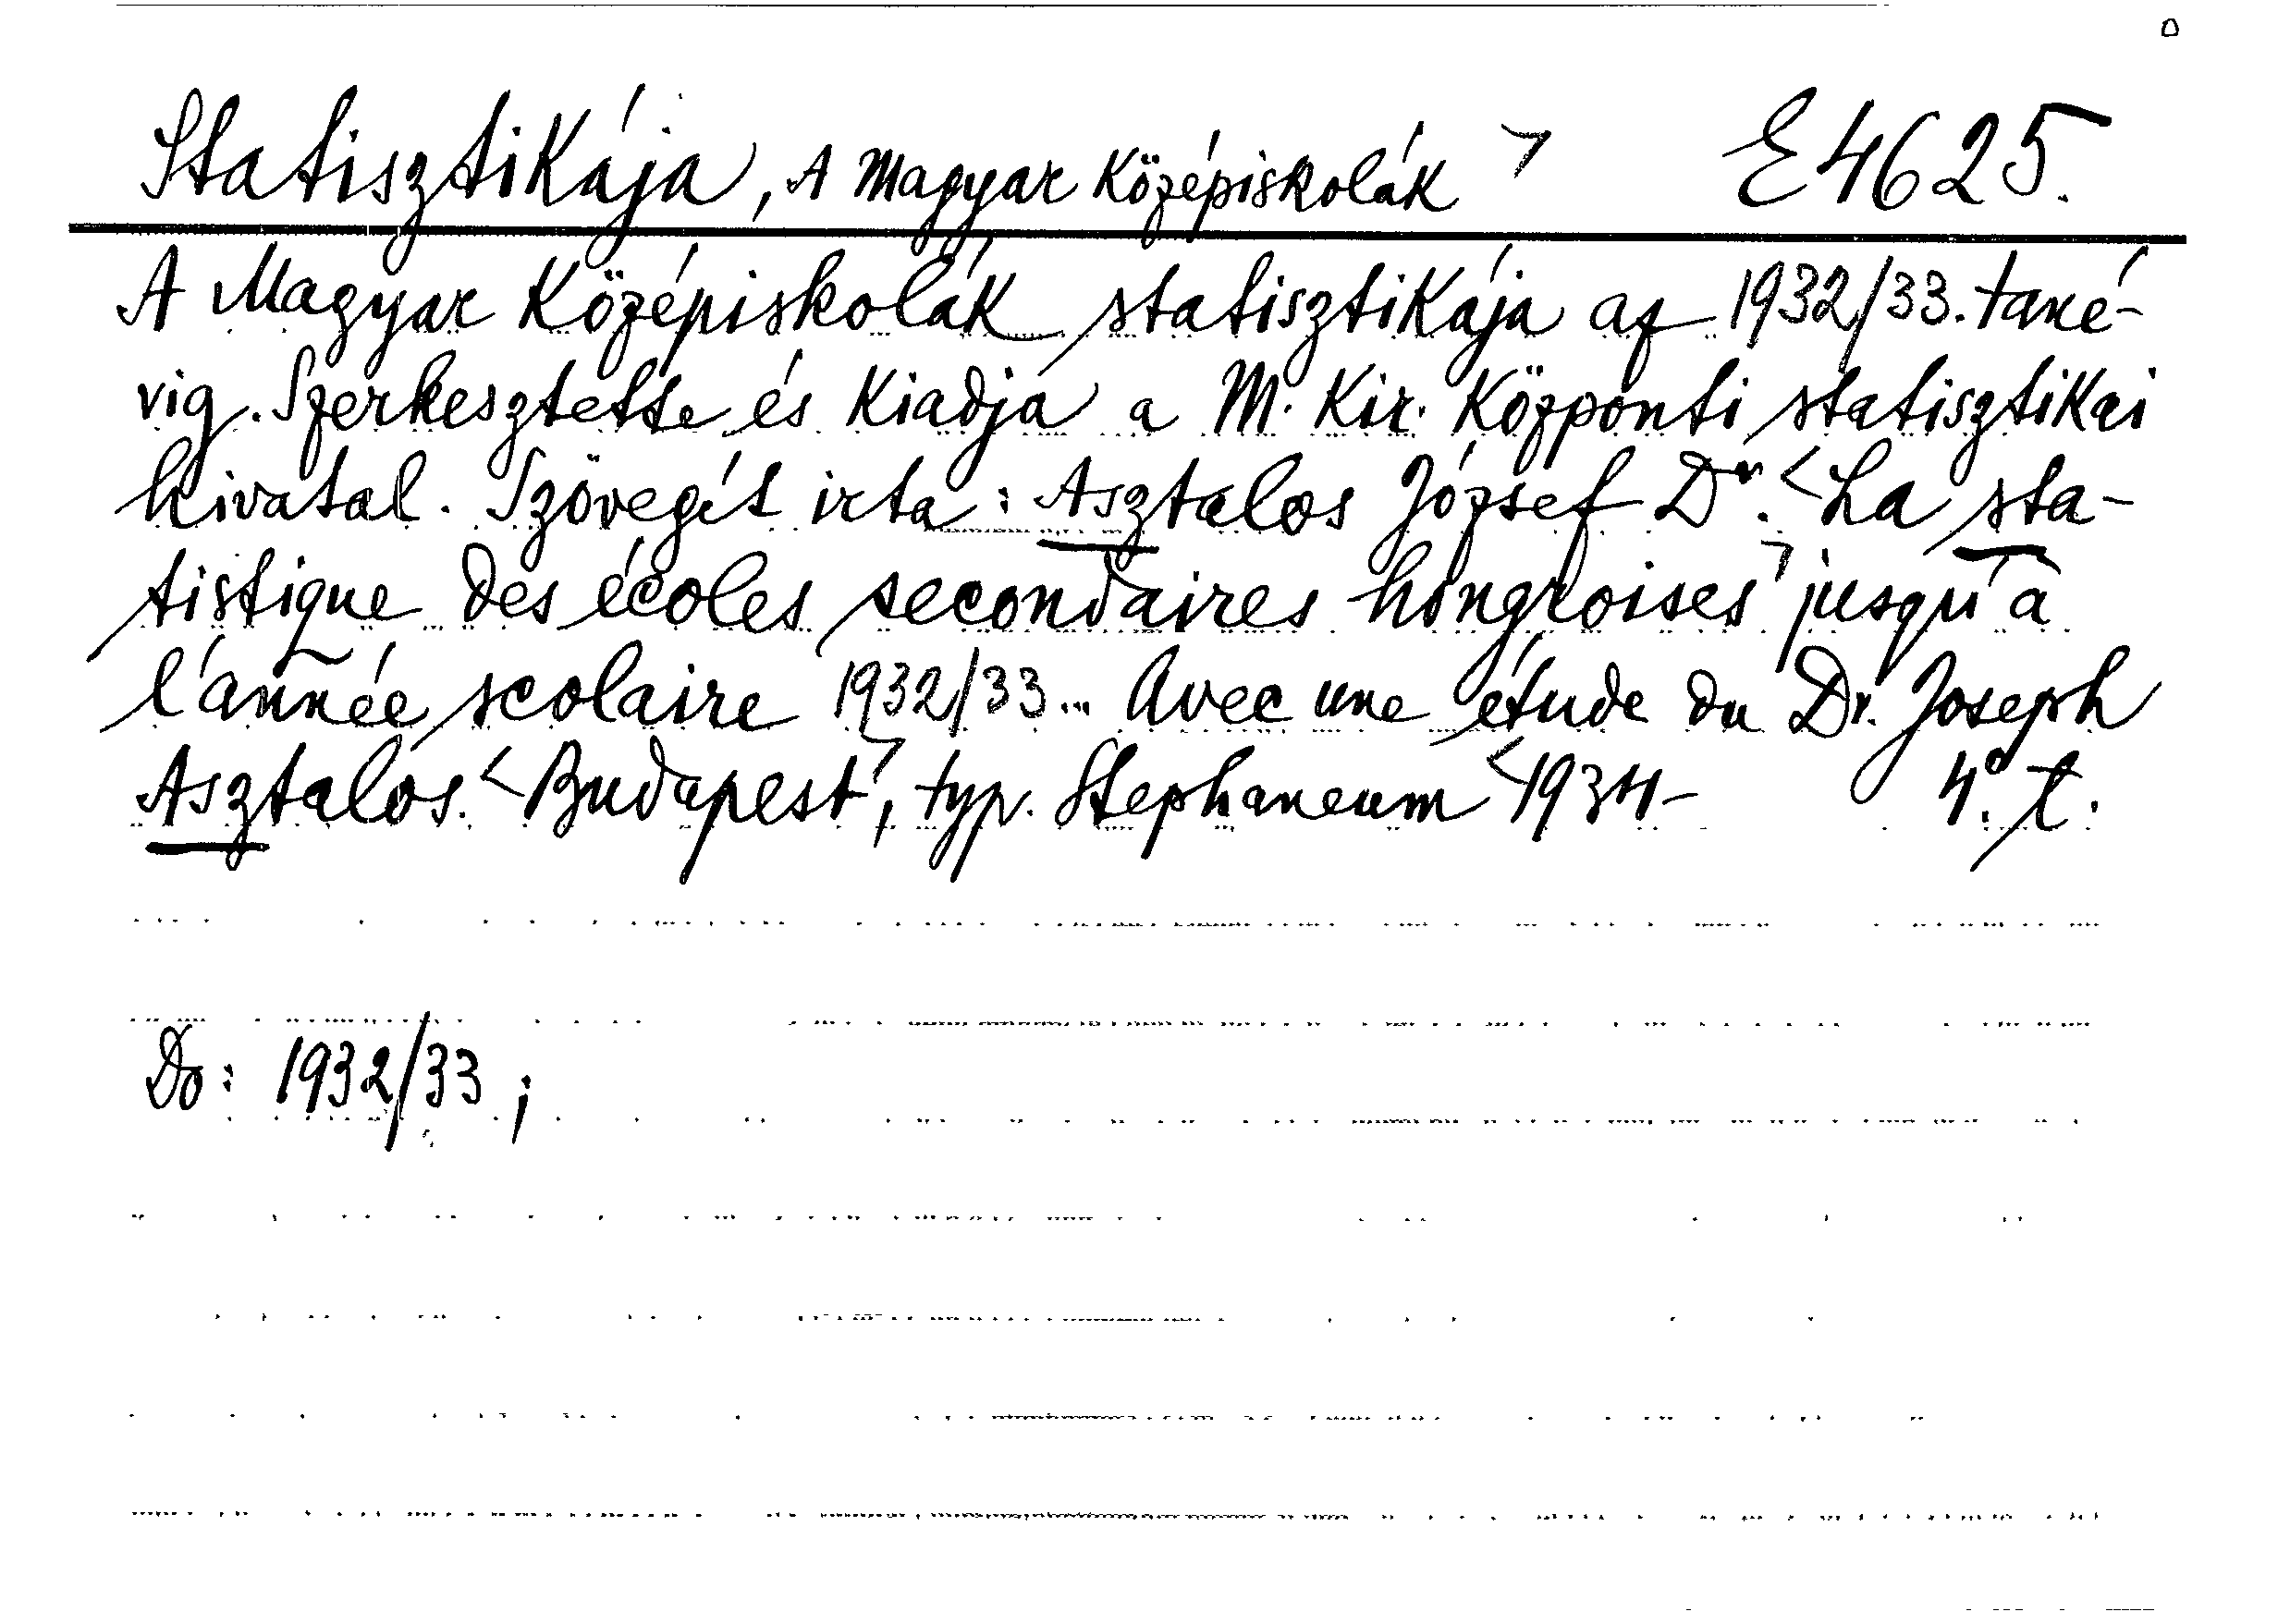 Statisztikája, A Magyar Középiskolák > E 4625.
A Magyar Középiskolák statisztikája az 1932/33. tané-
vig. Szerkesztette és kiadja a M. Kir. Központi statisztikai
hivatal. Szövegét irta: Asztalos József Dr. <La sta-
tistique des écoles secondaires hongroises> jusqu'à
l'année scolaire 1932/33... Avec une étude du Dr. Joseph
Asztalos. <Budapest>, typ. Stephaneum <1934- 4°. t.
Do: 1932/33;